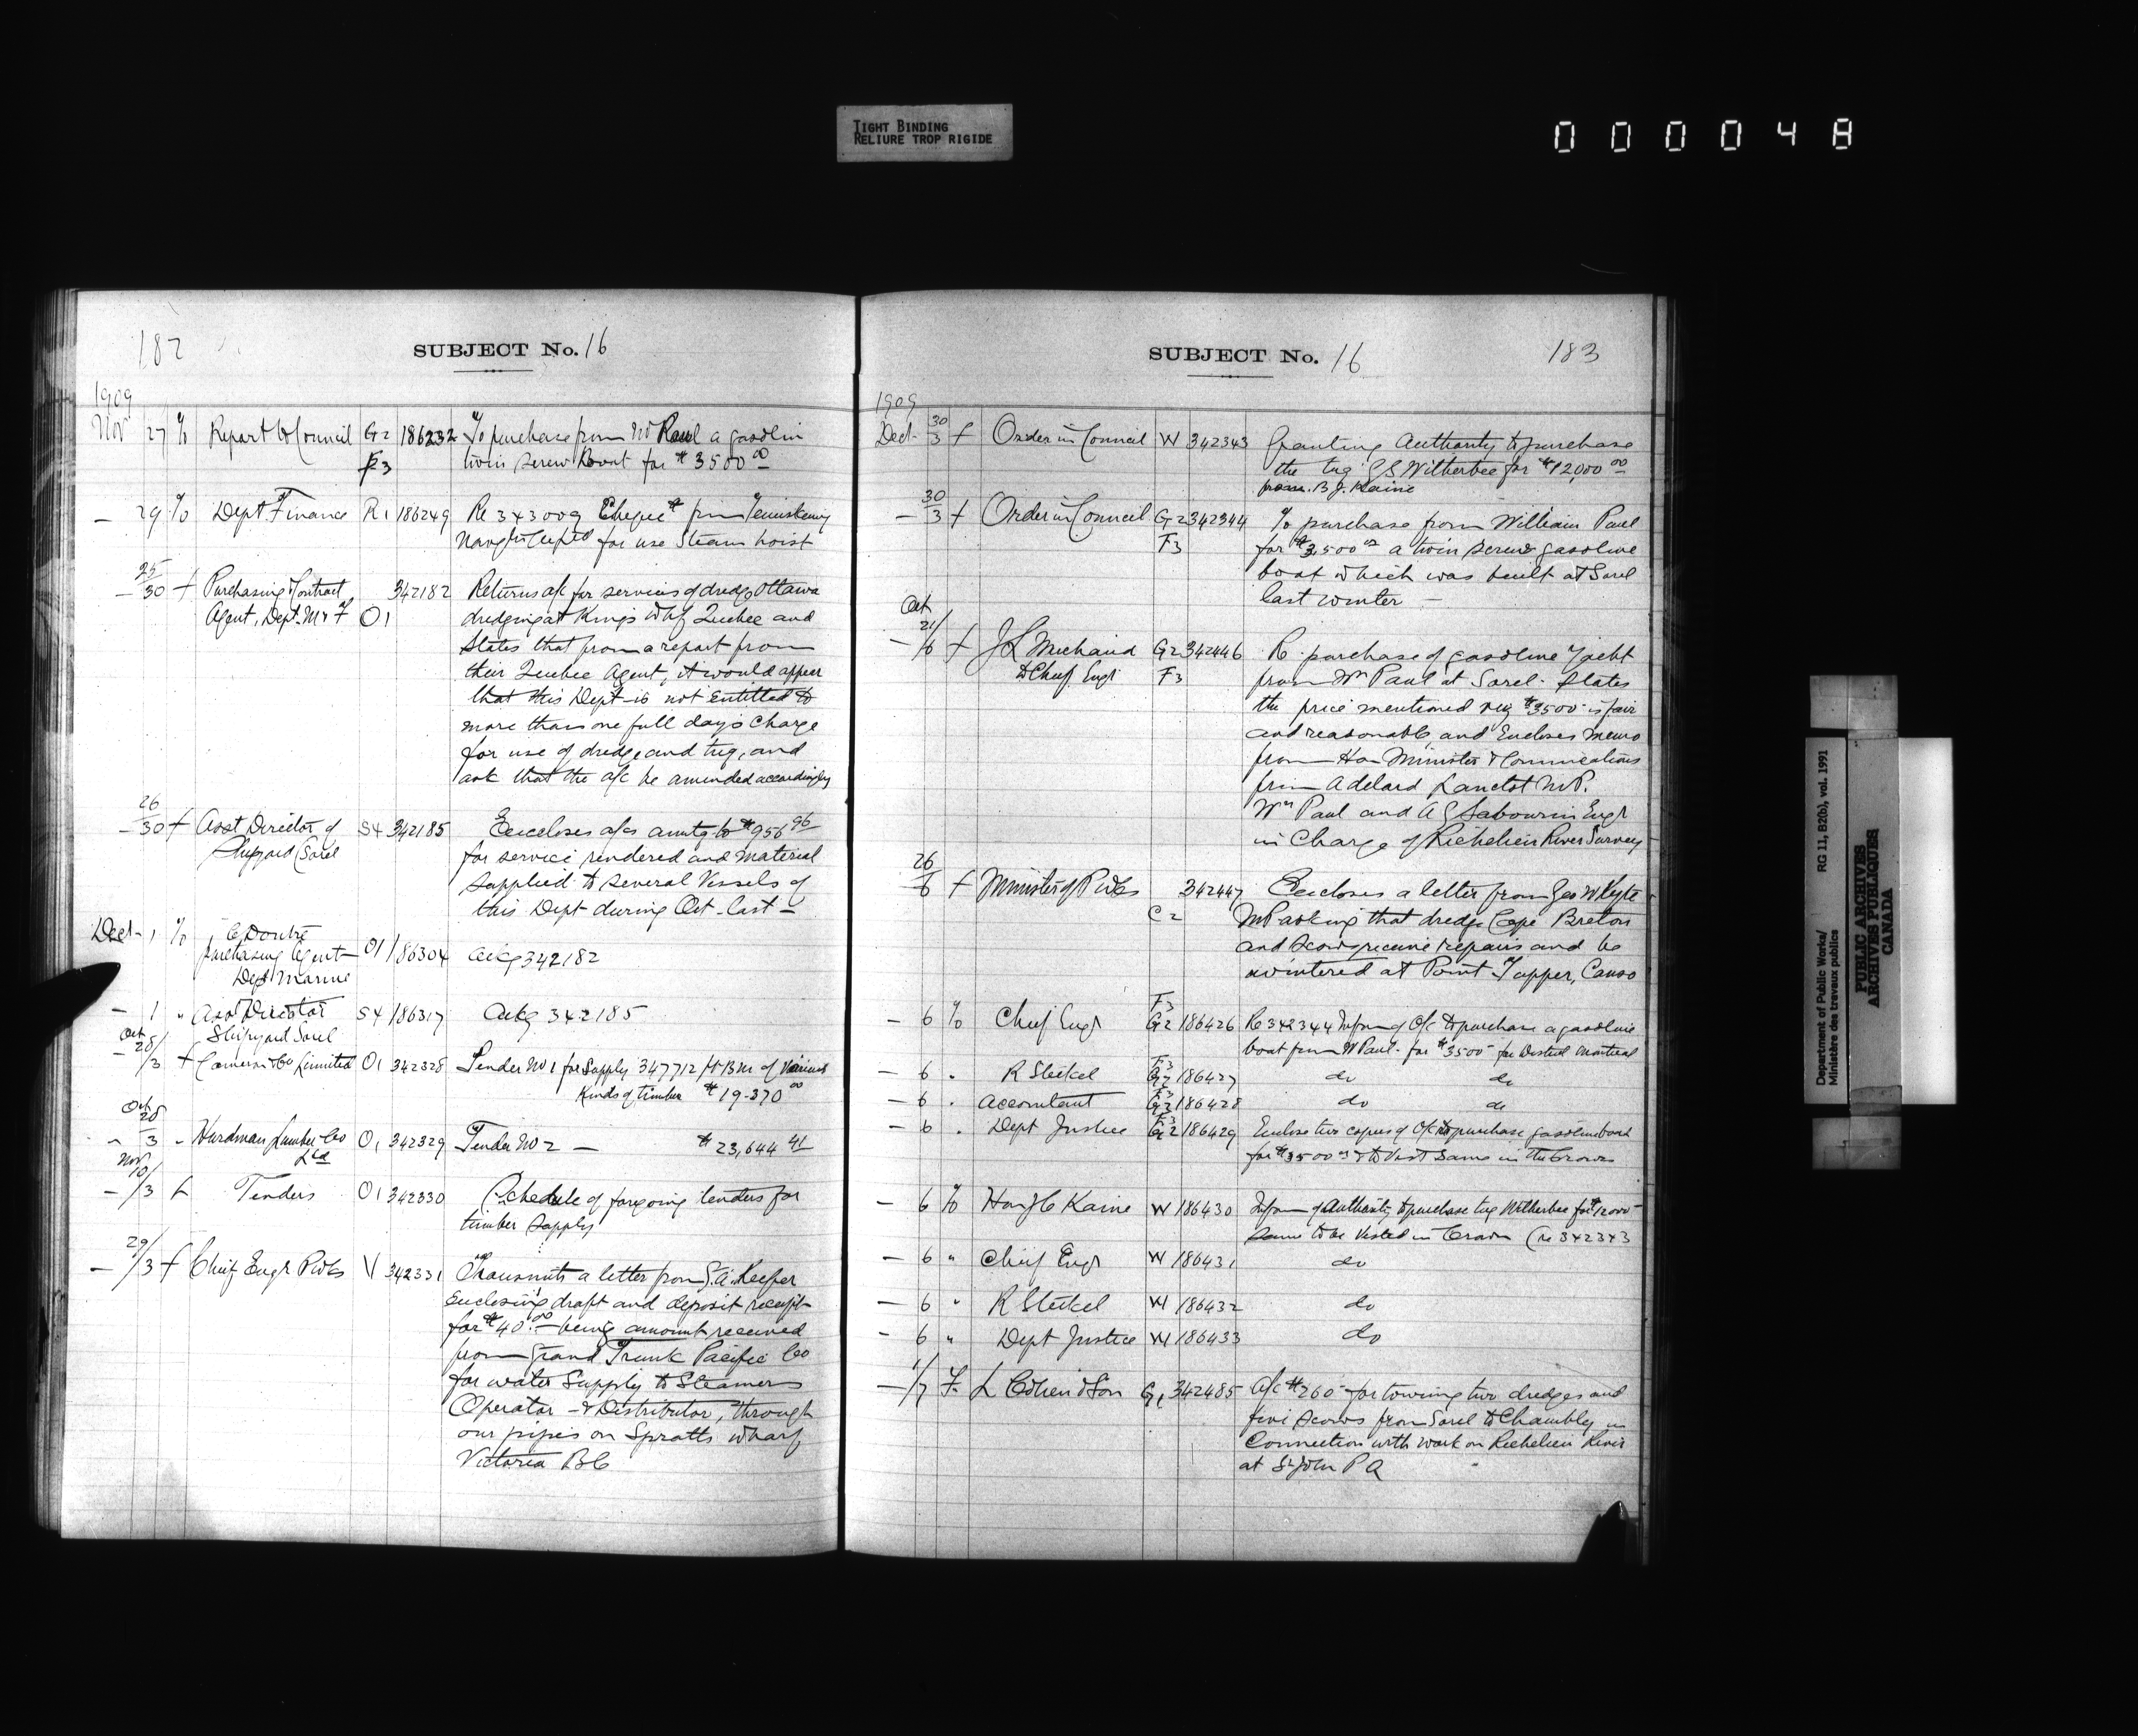 TIGHT BINDING
RELIURE TROP RIGIDE
000048
182
SUBJECT No. 16
1909
Nov 27 % Report to Council G2 186232 To purchase from W Paul a gasolin
F3 twin screw Boat for $3500 00
— 29 % Dept Finance R1 186249 Re 343009 Cheque from Temiskaming
for use Steam hoist
25
— 30 f Purchasing & Contract 342182 Returns a/c for services of dredge Ottawa
Agent, Dept M & F O1 dredging at Kings Whf Quebec and
States that from a report from
their Quebec Agent, it would appear
that this Dept is not entitled to
more than one full day's charge
for use of dredge and tug, and
ask that the a/c be amended accordingly
26
— 30 f Asst Director of S4 342185 Encloses a/cs amtg to $956 96
Shipyard Sorel for service rendered and material
supplied to several Vessels of
this Dept during Oct. last —
Dect 1 % C Doutre
purchasing Agent O1 186304 ackg 342182
Dept Marine
— 1 " Asst Director S4 186317 Ackg 342185
Shipyard Sorel
Oct
28
— /3 f Cameron & Co Limited O1 342328 Tender No 1 for Supply 347712 ft BM of Various
Kinds of timber $19-370 00
Oct
28
" 3 " Hurdman Lumber Co O1 342329 Tender No 2 — $23,644 41
Ltd
Nov
10/
— /3 f Tenders O1 342330 Schedule of forgoing tenders for
timber supply
29/
— /3 f Chief Engr P Wks V 342331 Transmits a letter from G.A. Keefer
Enclosing draft and deposit receipt
for $40.00 — being amount received
from Grand Trunk Pacific Co
for water Supply to Steamers
Operator — & Distributor, through
our pipes on Spratts wharf
Victoria BC
SUBJECT No. 16
183
1909
30
Dect 3 f Order in Council W 342343 Granting Authority to purchase
the tug G S Witherbee for $12,000 00
from B J. Kaine
30
— 3 f Order in Council G2 342344 To purchase from William Paul
F3 for $3,500 00 a twin screw gasoline
boat which was built at Sorel
last winter —
Oct
21/
— /6 f J L Michaud G2 342446 Re purchase of gasoline Yacht
to Chief Engr F3 from Wm Paul at Sorel. States
the price mentioned viz $3500 is fair
and reasonable and Encloses memo
from Hon Minister & Communications
from Adelard Lanctot M.P.
Wm Paul and A G Sabourin Engr
in Charge of Richelieu River Survey
26
— 6 f Minister of P Wks 342447 Encloses a letter from Geo W Kyte
C2 MP asking that dredge Cape Breton
and scows receive repairs and be
wintered at Point Tupper, Canso
F3
— 6 % Chief Engr G2 186426 Re 342344 Infmg of O/c to purchase a gasoline
boat from W Paul. for $3500 for District Montreal
F3
— 6 " R Steckel G2 186427 do do
F3
— 6 " Accountant G2 186428 do do
F3
— 6 " Dept Justice G2 186429 Enclose two copies of O/c to purchase gasoline boat
for $3500 00 & to Vest Same in the Crown
— 6 % Hon J C Kaine W 186430 Infmg of Authority to purchase tug Witherbee for $12000
same to be Vested in Crown (re 342343
— 6 " Chief Engr W 186431 do
— 6 " R Steckel W 186432 do
— 6 " Dept Justice W 186433 do
— 1/7 f L Cohen & Son G1 342485 A/c $260 for towing two dredges and
five scows from Sorel to Chambly in
Connection with work on Richelieu River
at St John P Q
Department of Public Works/ RG 11, B2(b), vol. 1991
Ministère des travaux publics
PUBLIC ARCHIVES
ARCHIVES PUBLIQUES
CANADA